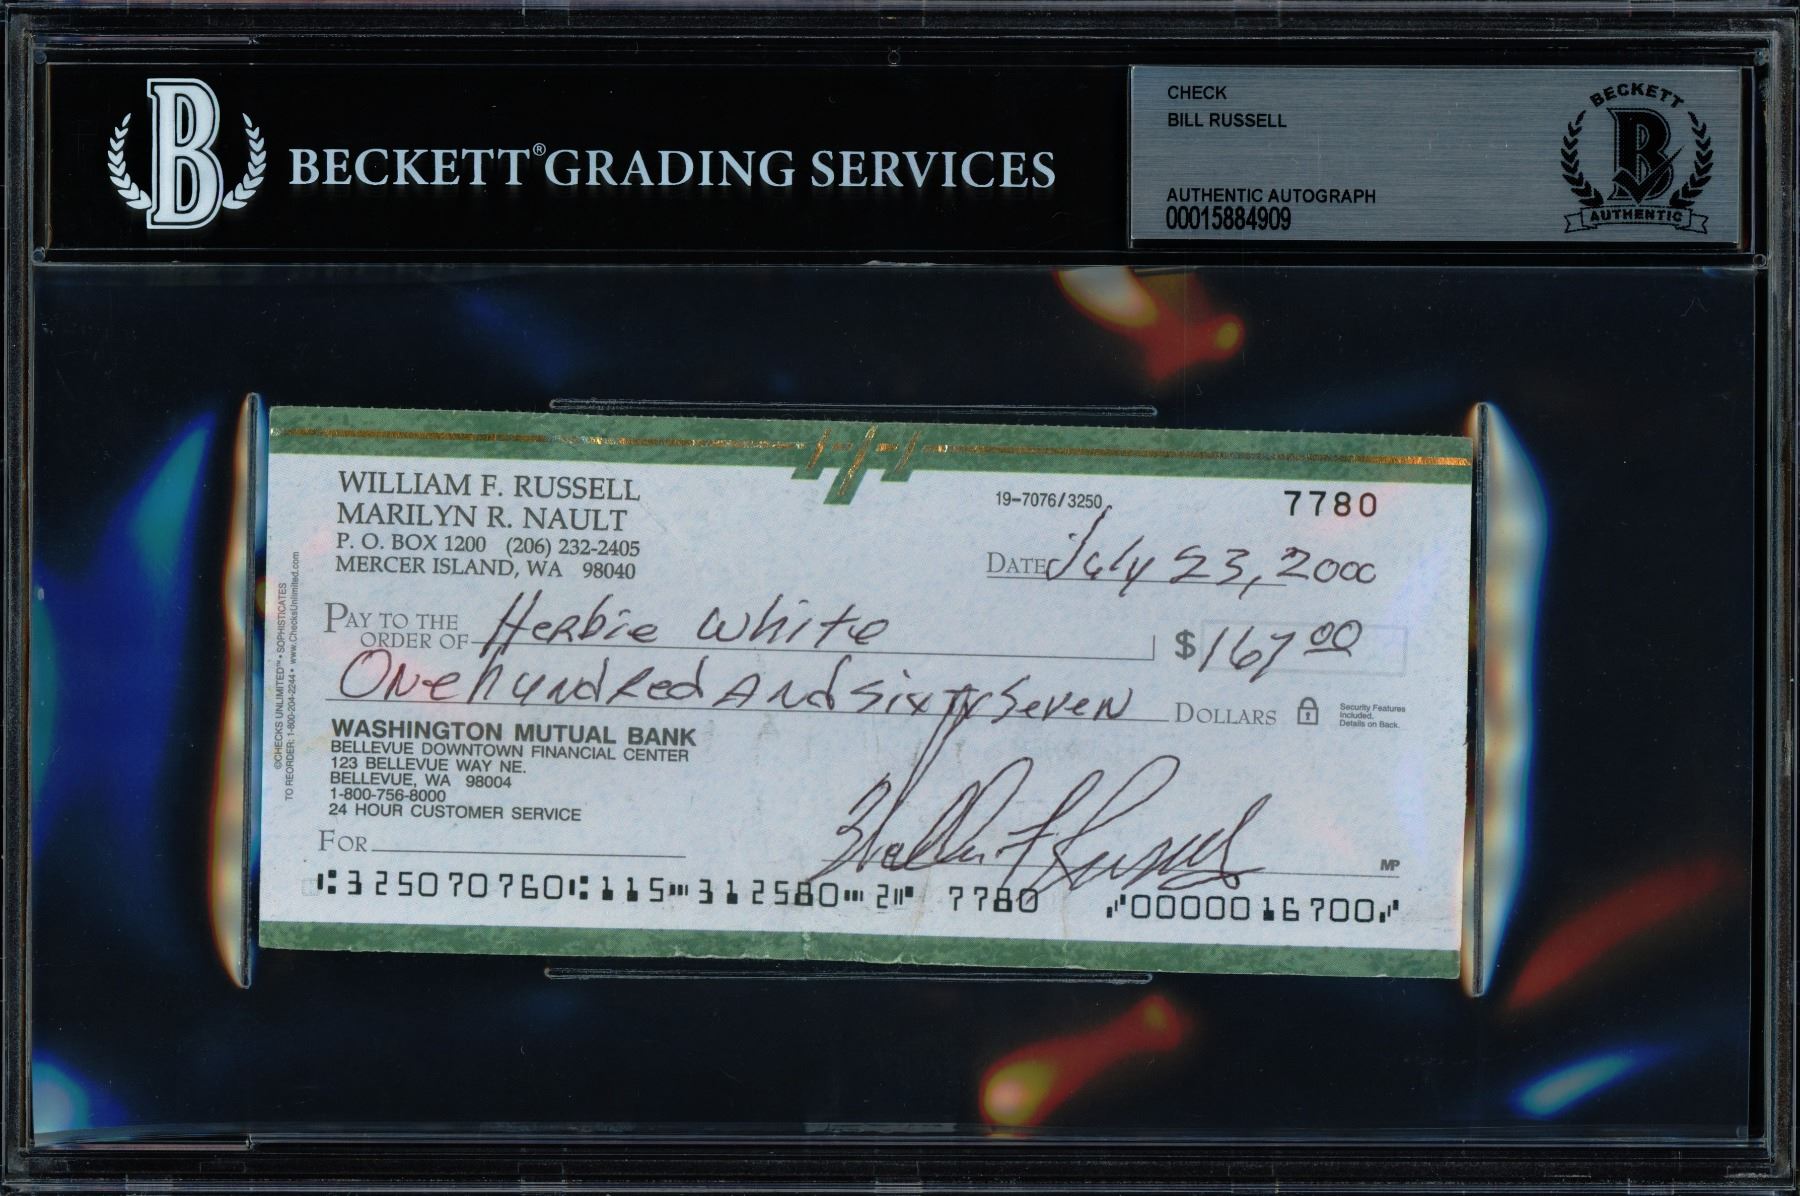 BECKETT® GRADING SERVICES
CHECK
BILL RUSSELL
AUTHENTIC AUTOGRAPH
00015884909
BECKETT
B
AUTHENTIC
WILLIAM F. RUSSELL
MARILYN R. NAULT
P. O. BOX 1200 (206) 232-2405
MERCER ISLAND, WA 98040
19-7076/3250
7780
DATE July 23, 2000
PAY TO THE
ORDER OF Herbie White
$ 167 00
One hundred And sixty Seven DOLLARS
Security Features
Included.
Details on Back.
WASHINGTON MUTUAL BANK
BELLEVUE DOWNTOWN FINANCIAL CENTER
123 BELLEVUE WAY NE.
BELLEVUE, WA 98004
1-800-756-8000
24 HOUR CUSTOMER SERVICE
FOR
William F Russell
MP
⑆325070760⑆115⑉312580⑉2⑈ 7780 ⑈0000016700⑈
©CHECKS UNLIMITED™ • SOPHISTICATES
TO REORDER: 1-800-204-2244 • www.ChecksUnlimited.com